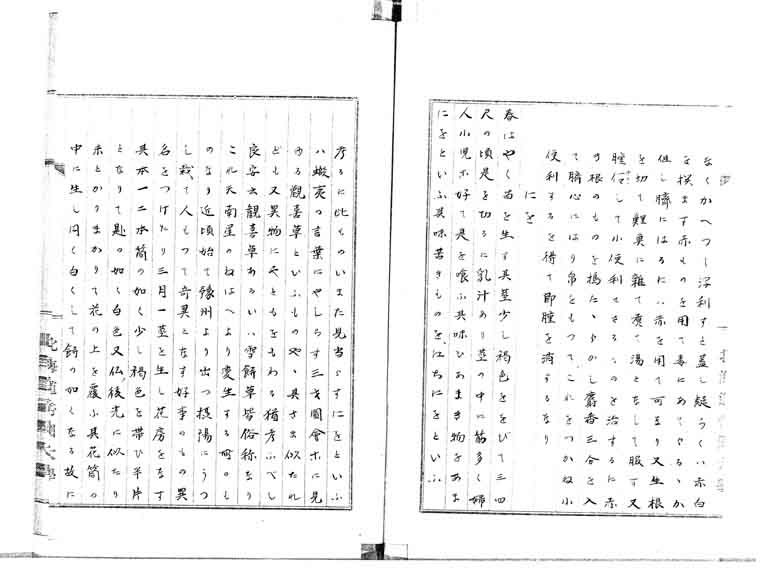 なくかへつて深利すと蓋し疑らくハ赤白
を撰ます赤ものを用て毒にあてやるゝか
但し臍にはるにハ赤を用て可なり又生根
を切て鯉奥に雑て煮て湯となして服す又
腫仕して小便利せさるものを治するに赤
き根のものを搗たゝらかし麝香三分を入
て臍心にはり帛をもつてこれをつかね小
便利するを得て即腫を消するなり
にを
春はやく苗を生す其茎少し褐色ををびて三四
尺の頃是を切るに乳汁あり茎の中に筋多く婦
人小児ホ好て是を喰ふ其味ひあまき物をあま
にをといふ其味苦きものを江ちにをといふ
考るに此ものいまた見当らすにをといふ
ハ蝦夷の言葉にやしらす三才圖會ホに見
ゆる觀喜草といふものやゝ其さま似たれ
ども又異物にやともをもわる猶考ふべし
良安云觀喜草あるいハ雪餅草皆俗称なり
これ天南星のねはへより変生する所のも
のなり近頃始て豫州より出つ摂陽にうつ
し栽て人もつて奇異となす好事のもの異
名をつけたり三月一茎を生し花房をなす
其本一二本筒の如く少し褐色を帯ひ半片
となりて匙の如く白色又仏後光に似たり
末とかりまかりて花の上を覆ふ其花筒の
中に生し円く白くして餅の如くなる故に